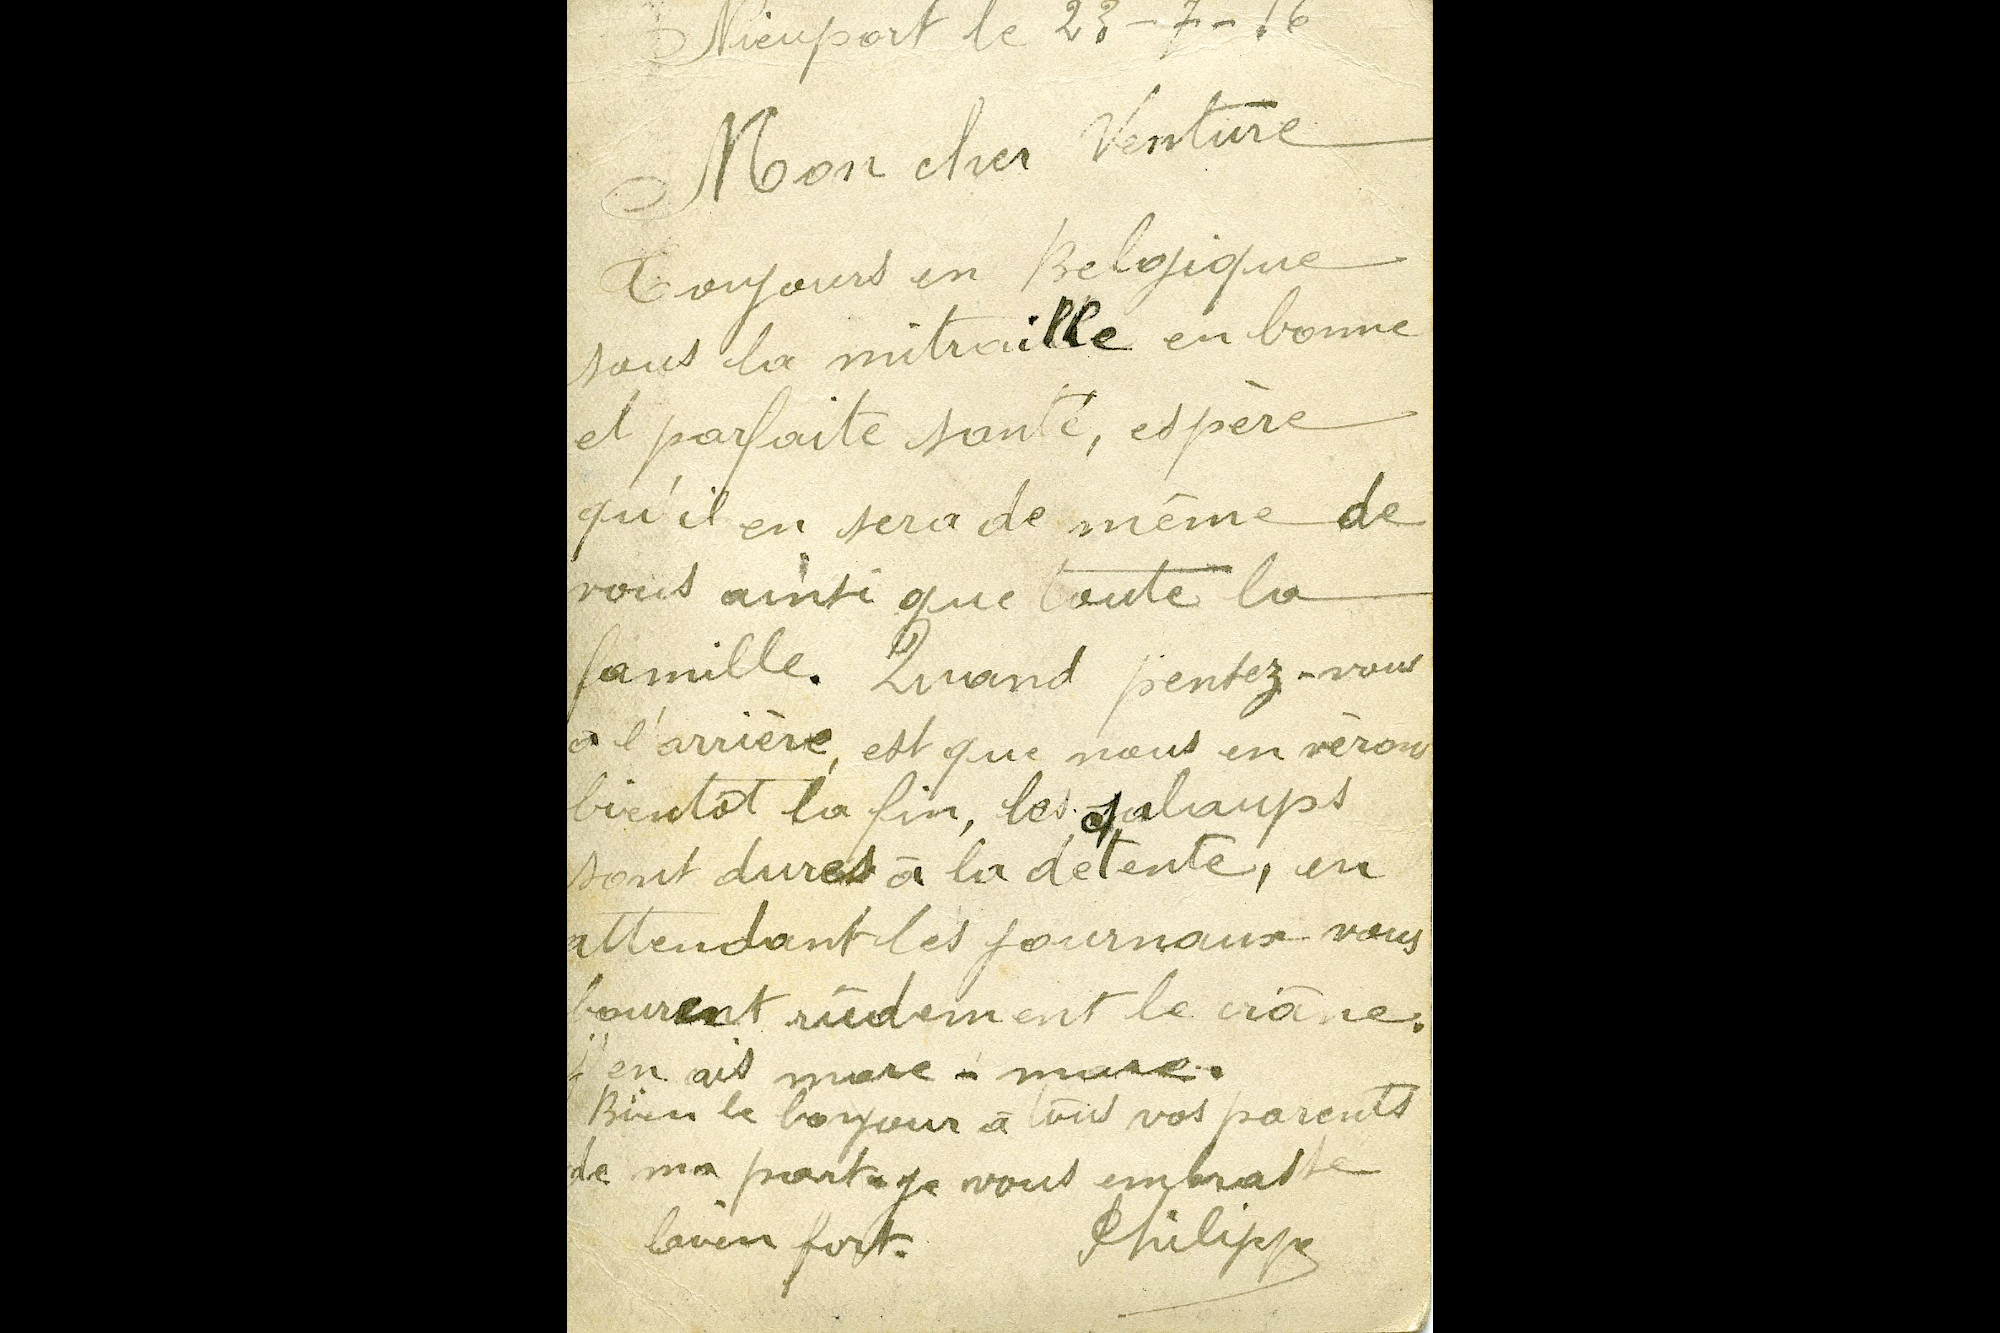 Nieuport le 23-7-16
Mon cher Venture
Toujours en Belgique
sous la mitraille en bonne
et parfaite santé, espère
qu'il en sera de même de
vous ainsi que toute la
famille. Quand pensez-vous
à l'arrière, est que nous en vèrons
bientôt la fin, les salaups
sont dures à la détente, en
attendant les journaux vous
bourent rudement le crâne.
j'en ais mare - mare.
Bien le bonjour à tous vos parents
de ma part je vous embrasse
bien fort. Philippe